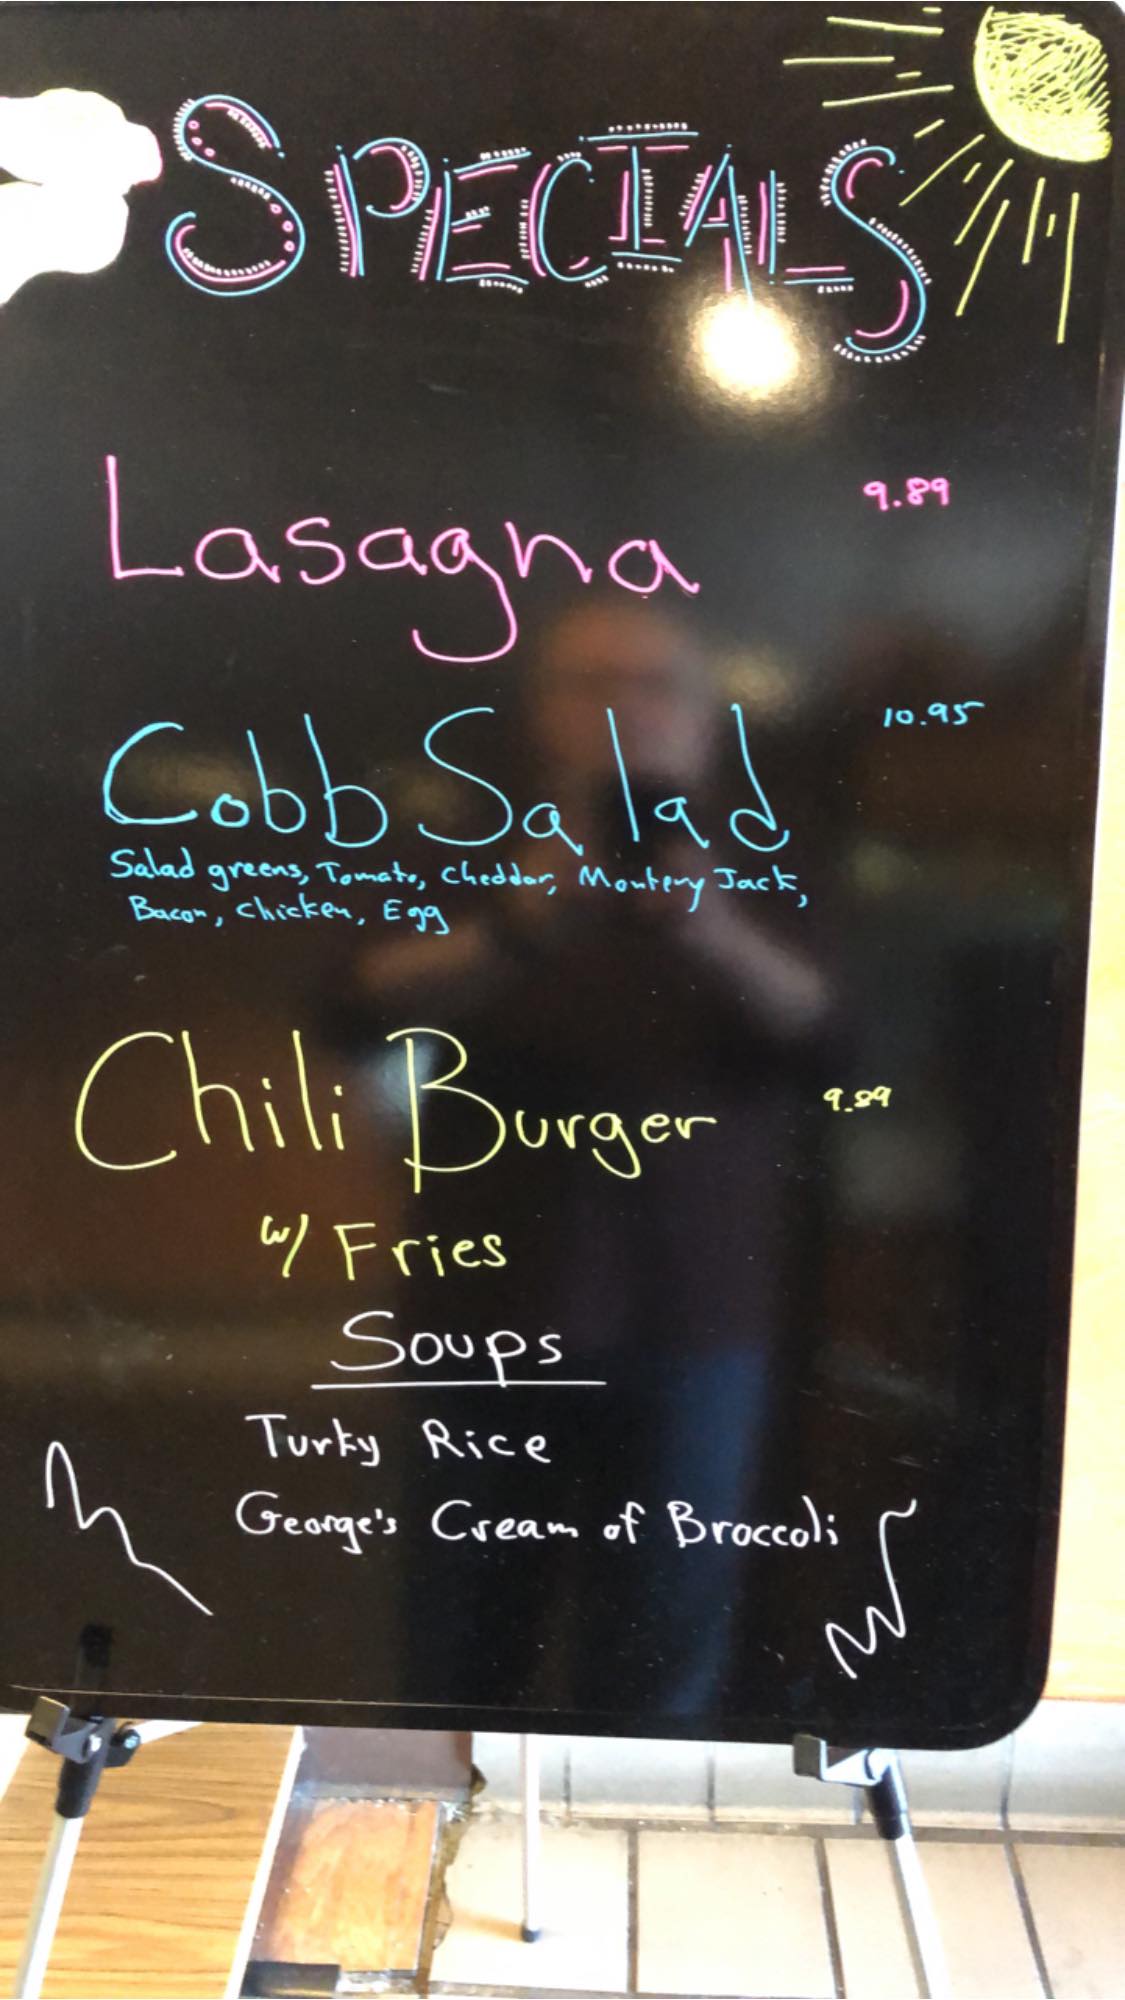 SPECIALS
Lasagna 9.89
Cobb Salad 10.95
Salad greens, Tomato, Cheddar, Montery Jack,
Bacon, Chicken, Egg
Chili Burger 9.89
w/ Fries
Soups
Turky Rice
George's Cream of Broccoli